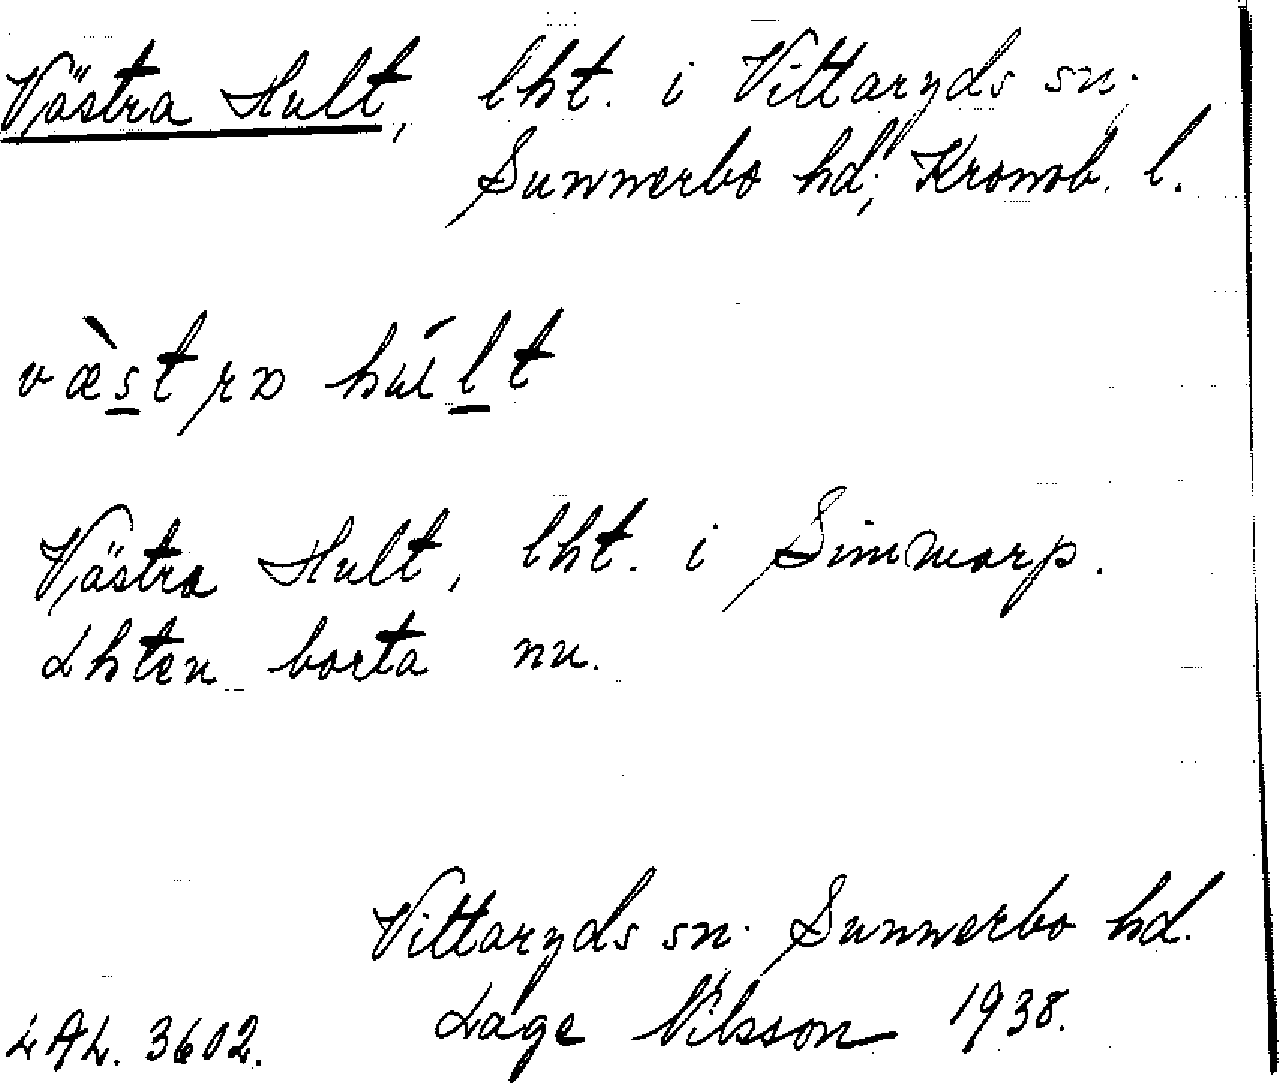 Västra Hult, lht. i Vittaryds sn.
Sunnerbo hd, Kronob. l.
væ̀s̲trɒ húl̲t
Västra Hult, lht. i Simmarp.
Lhten borta nu.
Vittaryds sn. Sunnerbo hd.
LAL. 3602. Lage Nilsson 1938.